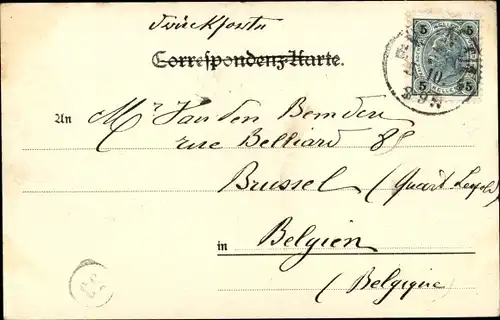 Drucksporte
Correspondenz-Karte.
5 5
5 5
An Mr Van den Bemden
rue Belliard 85
Brussel (Quart Leopold)
in Belgien
(Belgique)